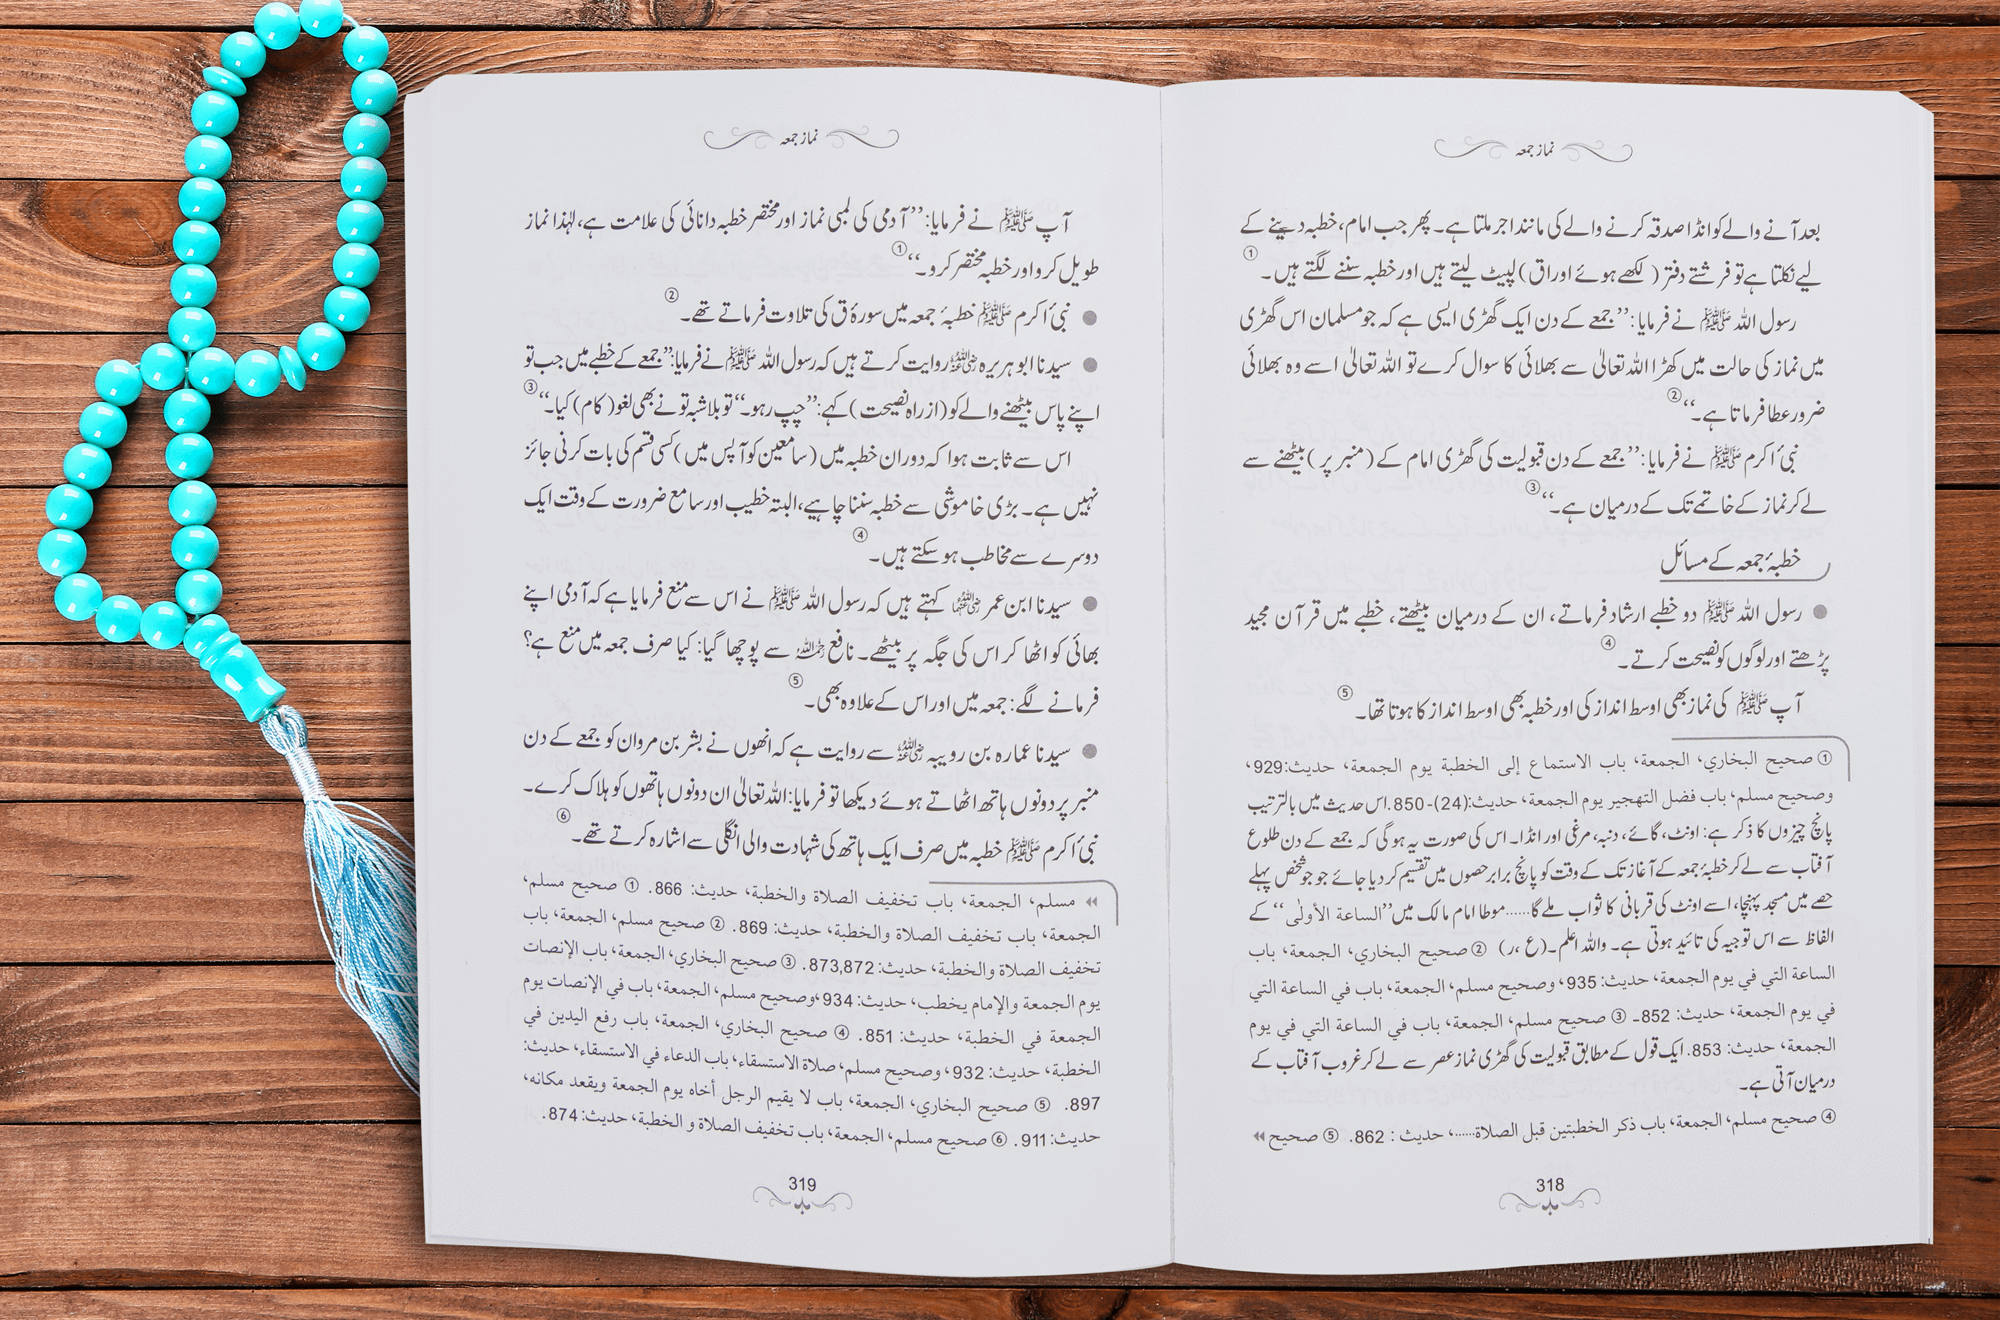 نماز جمعہ
بعد آنے والے کو انڈا صدقہ کرنے والے کی مانند اجر ملتا ہے۔ پھر جب امام، خطبہ دینے کے
لیے نکلتا ہے تو فرشتے دفتر (لکھے ہوئے اوراق) لپیٹ لیتے ہیں اور خطبہ سننے لگتے ہیں۔ ①
رسول اللہ ﷺ نے فرمایا: ’’جمعے کے دن ایک گھڑی ایسی ہے کہ جو مسلمان اس گھڑی
میں نماز کی حالت میں کھڑا اللہ تعالیٰ سے بھلائی کا سوال کرے تو اللہ تعالیٰ اسے وہ بھلائی
ضرور عطا فرماتا ہے۔‘‘ ②
نبیٔ اکرم ﷺ نے فرمایا: ’’جمعے کے دن قبولیت کی گھڑی امام کے (منبر پر) بیٹھنے سے
لے کر نماز کے خاتمے تک کے درمیان ہے۔‘‘ ③
خطبۂ جمعہ کے مسائل
● رسول اللہ ﷺ دو خطبے ارشاد فرماتے، ان کے درمیان بیٹھتے، خطبے میں قرآن مجید
پڑھتے اور لوگوں کو نصیحت کرتے۔ ④
آپ ﷺ کی نماز بھی اوسط انداز کی اور خطبہ بھی اوسط انداز کا ہوتا تھا۔ ⑤
① صحيح البخاري، الجمعة، باب الاستماع إلى الخطبة يوم الجمعة، حديث:929،
وصحيح مسلم، باب فضل التهجير يوم الجمعة، حديث:(24)-850. اس حدیث میں بالترتیب
پانچ چیزوں کا ذکر ہے: اونٹ، گائے، دنبہ، مرغی اور انڈا۔ اس کی صورت یہ ہوگی کہ جمعے کے دن طلوع
آفتاب سے لے کر خطبۂ جمعہ کے آغاز تک کے وقت کو پانچ برابر حصوں میں تقسیم کر دیا جائے جو جو شخص پہلے
حصے میں مسجد پہنچا، اسے اونٹ کی قربانی کا ثواب ملے گا......موطا امام مالک میں ’’الساعة الأولى‘‘ کے
الفاظ سے اس توجیہ کی تائید ہوتی ہے۔ واللہ اعلم۔ (ع،ر) ② صحيح البخاري، الجمعة، باب
الساعة التي في يوم الجمعة، حديث: 935، وصحيح مسلم، الجمعة، باب في الساعة التي
في يوم الجمعة، حديث: 852۔ ③ صحيح مسلم، الجمعة، باب في الساعة التي في يوم
الجمعة، حديث: 853. ایک قول کے مطابق قبولیت کی گھڑی نماز عصر سے لے کر غروب آفتاب کے
درمیان آتی ہے۔
④ صحيح مسلم، الجمعة، باب ذكر الخطبتين قبل الصلاة......، حديث : 862. ⑤ صحيح ◄◄
318
نماز جمعہ
آپ ﷺ نے فرمایا: ’’آدمی کی لمبی نماز اور مختصر خطبہ دانائی کی علامت ہے، لہٰذا نماز
طویل کرو اور خطبہ مختصر کرو۔‘‘ ①
● نبیٔ اکرم ﷺ خطبۂ جمعہ میں سورۂ ق کی تلاوت فرماتے تھے۔ ②
● سیدنا ابو ہریرہ رضی اللہ عنہ روایت کرتے ہیں کہ رسول اللہ ﷺ نے فرمایا: ’’جمعے کے خطبے میں جب تو
اپنے پاس بیٹھنے والے کو (از راہ نصیحت) کہے: ’’چپ رہو۔‘‘ تو بلاشبہ تو نے بھی لغو (کام) کیا۔‘‘ ③
اس سے ثابت ہوا کہ دوران خطبہ میں (سامعین کو آپس میں) کسی قسم کی بات کرنی جائز
نہیں ہے۔ بڑی خاموشی سے خطبہ سننا چاہیے، البتہ خطیب اور سامع ضرورت کے وقت ایک
دوسرے سے مخاطب ہو سکتے ہیں۔ ④
● سیدنا ابن عمر رضی اللہ عنہما کہتے ہیں کہ رسول اللہ ﷺ نے اس سے منع فرمایا ہے کہ آدمی اپنے
بھائی کو اٹھا کر اس کی جگہ پر بیٹھے۔ نافع رحمہ اللہ سے پوچھا گیا: کیا صرف جمعہ میں منع ہے؟
فرمانے لگے: جمعہ میں اور اس کے علاوہ بھی۔ ⑤
● سیدنا عمارہ بن رویبہ رضی اللہ عنہ سے روایت ہے کہ انھوں نے بشر بن مروان کو جمعے کے دن
منبر پر دونوں ہاتھ اٹھاتے ہوئے دیکھا تو فرمایا: اللہ تعالیٰ ان دونوں ہاتھوں کو ہلاک کرے۔
نبیٔ اکرم ﷺ خطبہ میں صرف ایک ہاتھ کی شہادت والی انگلی سے اشارہ کرتے تھے۔ ⑥
◄◄ مسلم، الجمعة، باب تخفيف الصلاة والخطبة، حديث: 866. ① صحيح مسلم،
الجمعة، باب تخفيف الصلاة والخطبة، حديث: 869. ② صحيح مسلم، الجمعة، باب
تخفيف الصلاة والخطبة، حديث: 873,872. ③ صحيح البخاري، الجمعة، باب الإنصات
يوم الجمعة والإمام يخطب، حديث: 934، وصحيح مسلم، الجمعة، باب في الإنصات يوم
الجمعة في الخطبة، حديث: 851. ④ صحيح البخاري، الجمعة، باب رفع اليدين في
الخطبة، حديث: 932، وصحيح مسلم، صلاة الاستسقاء، باب الدعاء في الاستسقاء، حديث:
897. ⑤ صحيح البخاري، الجمعة، باب لا يقيم الرجل أخاه يوم الجمعة ويقعد مكانه،
حديث: 911. ⑥ صحيح مسلم، الجمعة، باب تخفيف الصلاة و الخطبة، حديث: 874.
319